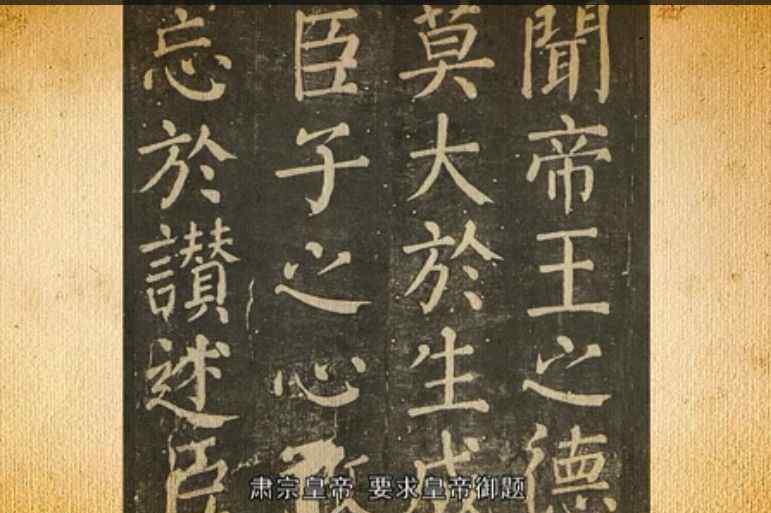 聞帝王之德
莫大於生成
臣子之心
忘於讚述臣
肃宗皇帝 要求皇帝御题